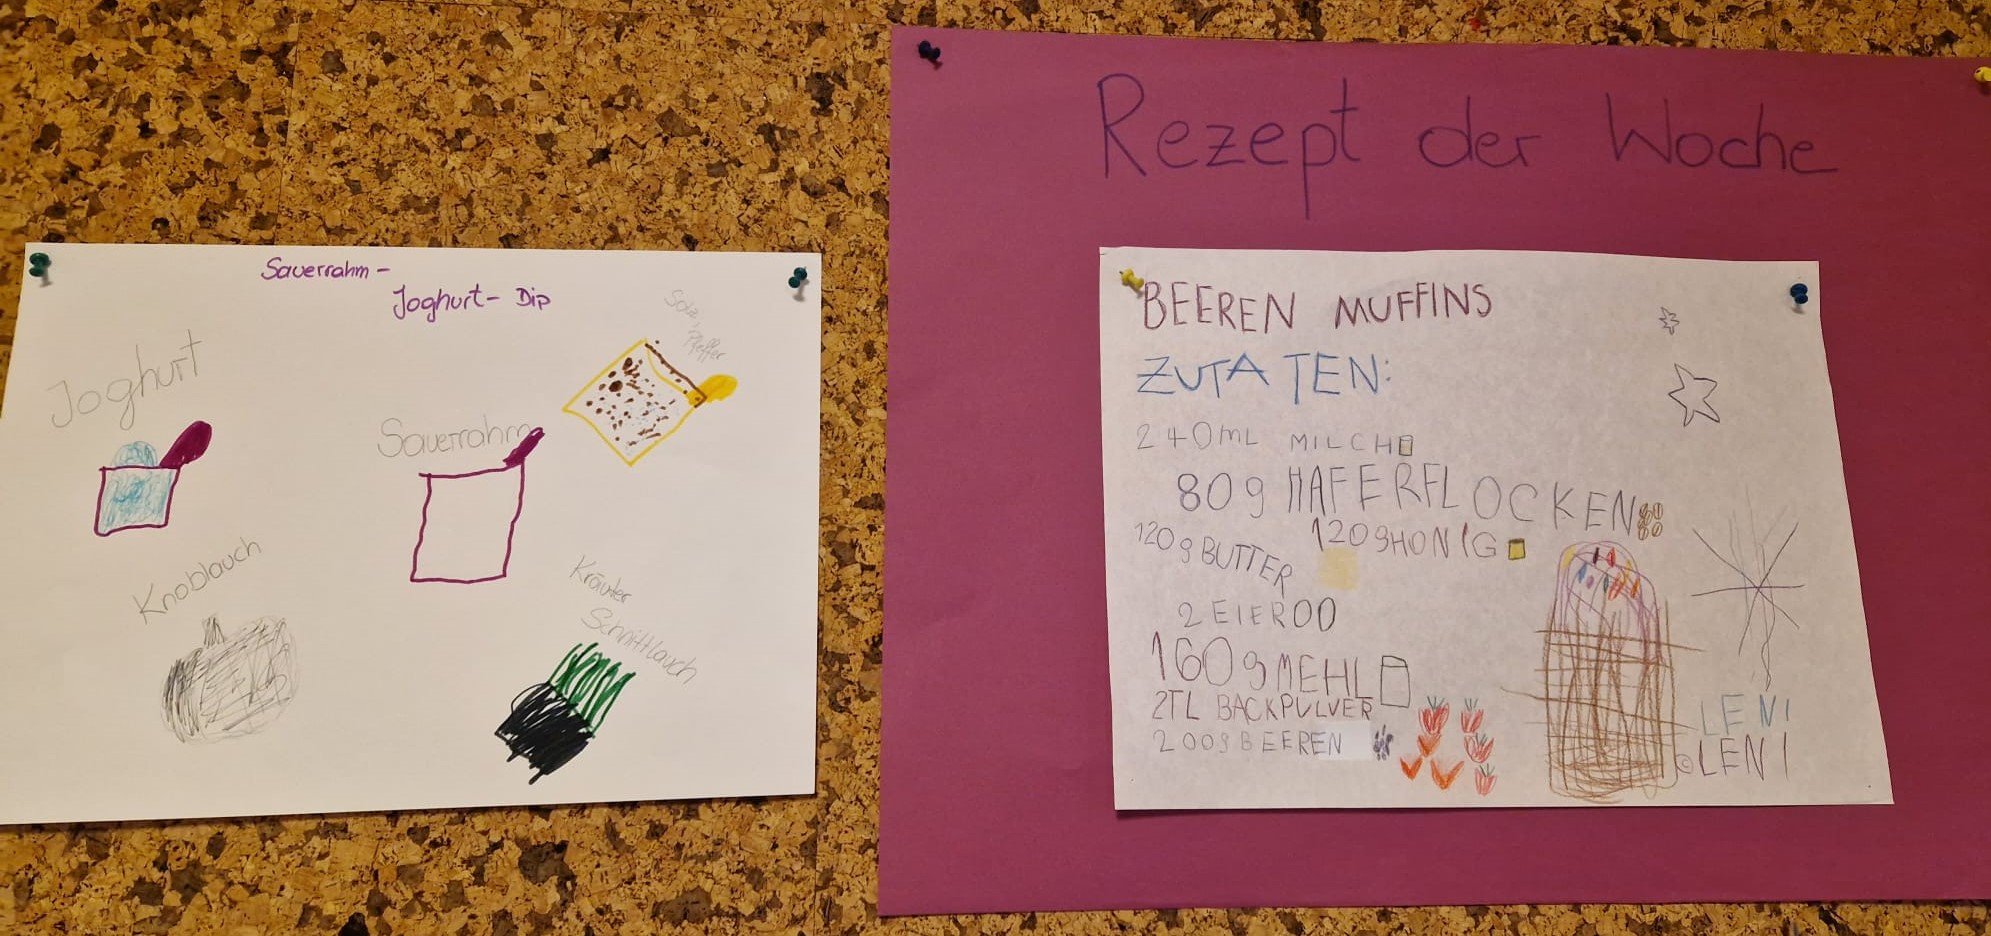 Sauerrahm-
Joghurt-Dip
Joghurt
Sauerrahm
Salz, Pfeffer
Knoblauch
Kräuter
Schnittlauch
Rezept der Woche
BEEREN MUFFINS
ZUTATEN:
240ML MILCH
80g HAFERFLOCKEN
120g BUTTER 120g HONIG
2 EIER
160g MEHL
2TL BACKPULVER
200g BEEREN
LENI
©LENI